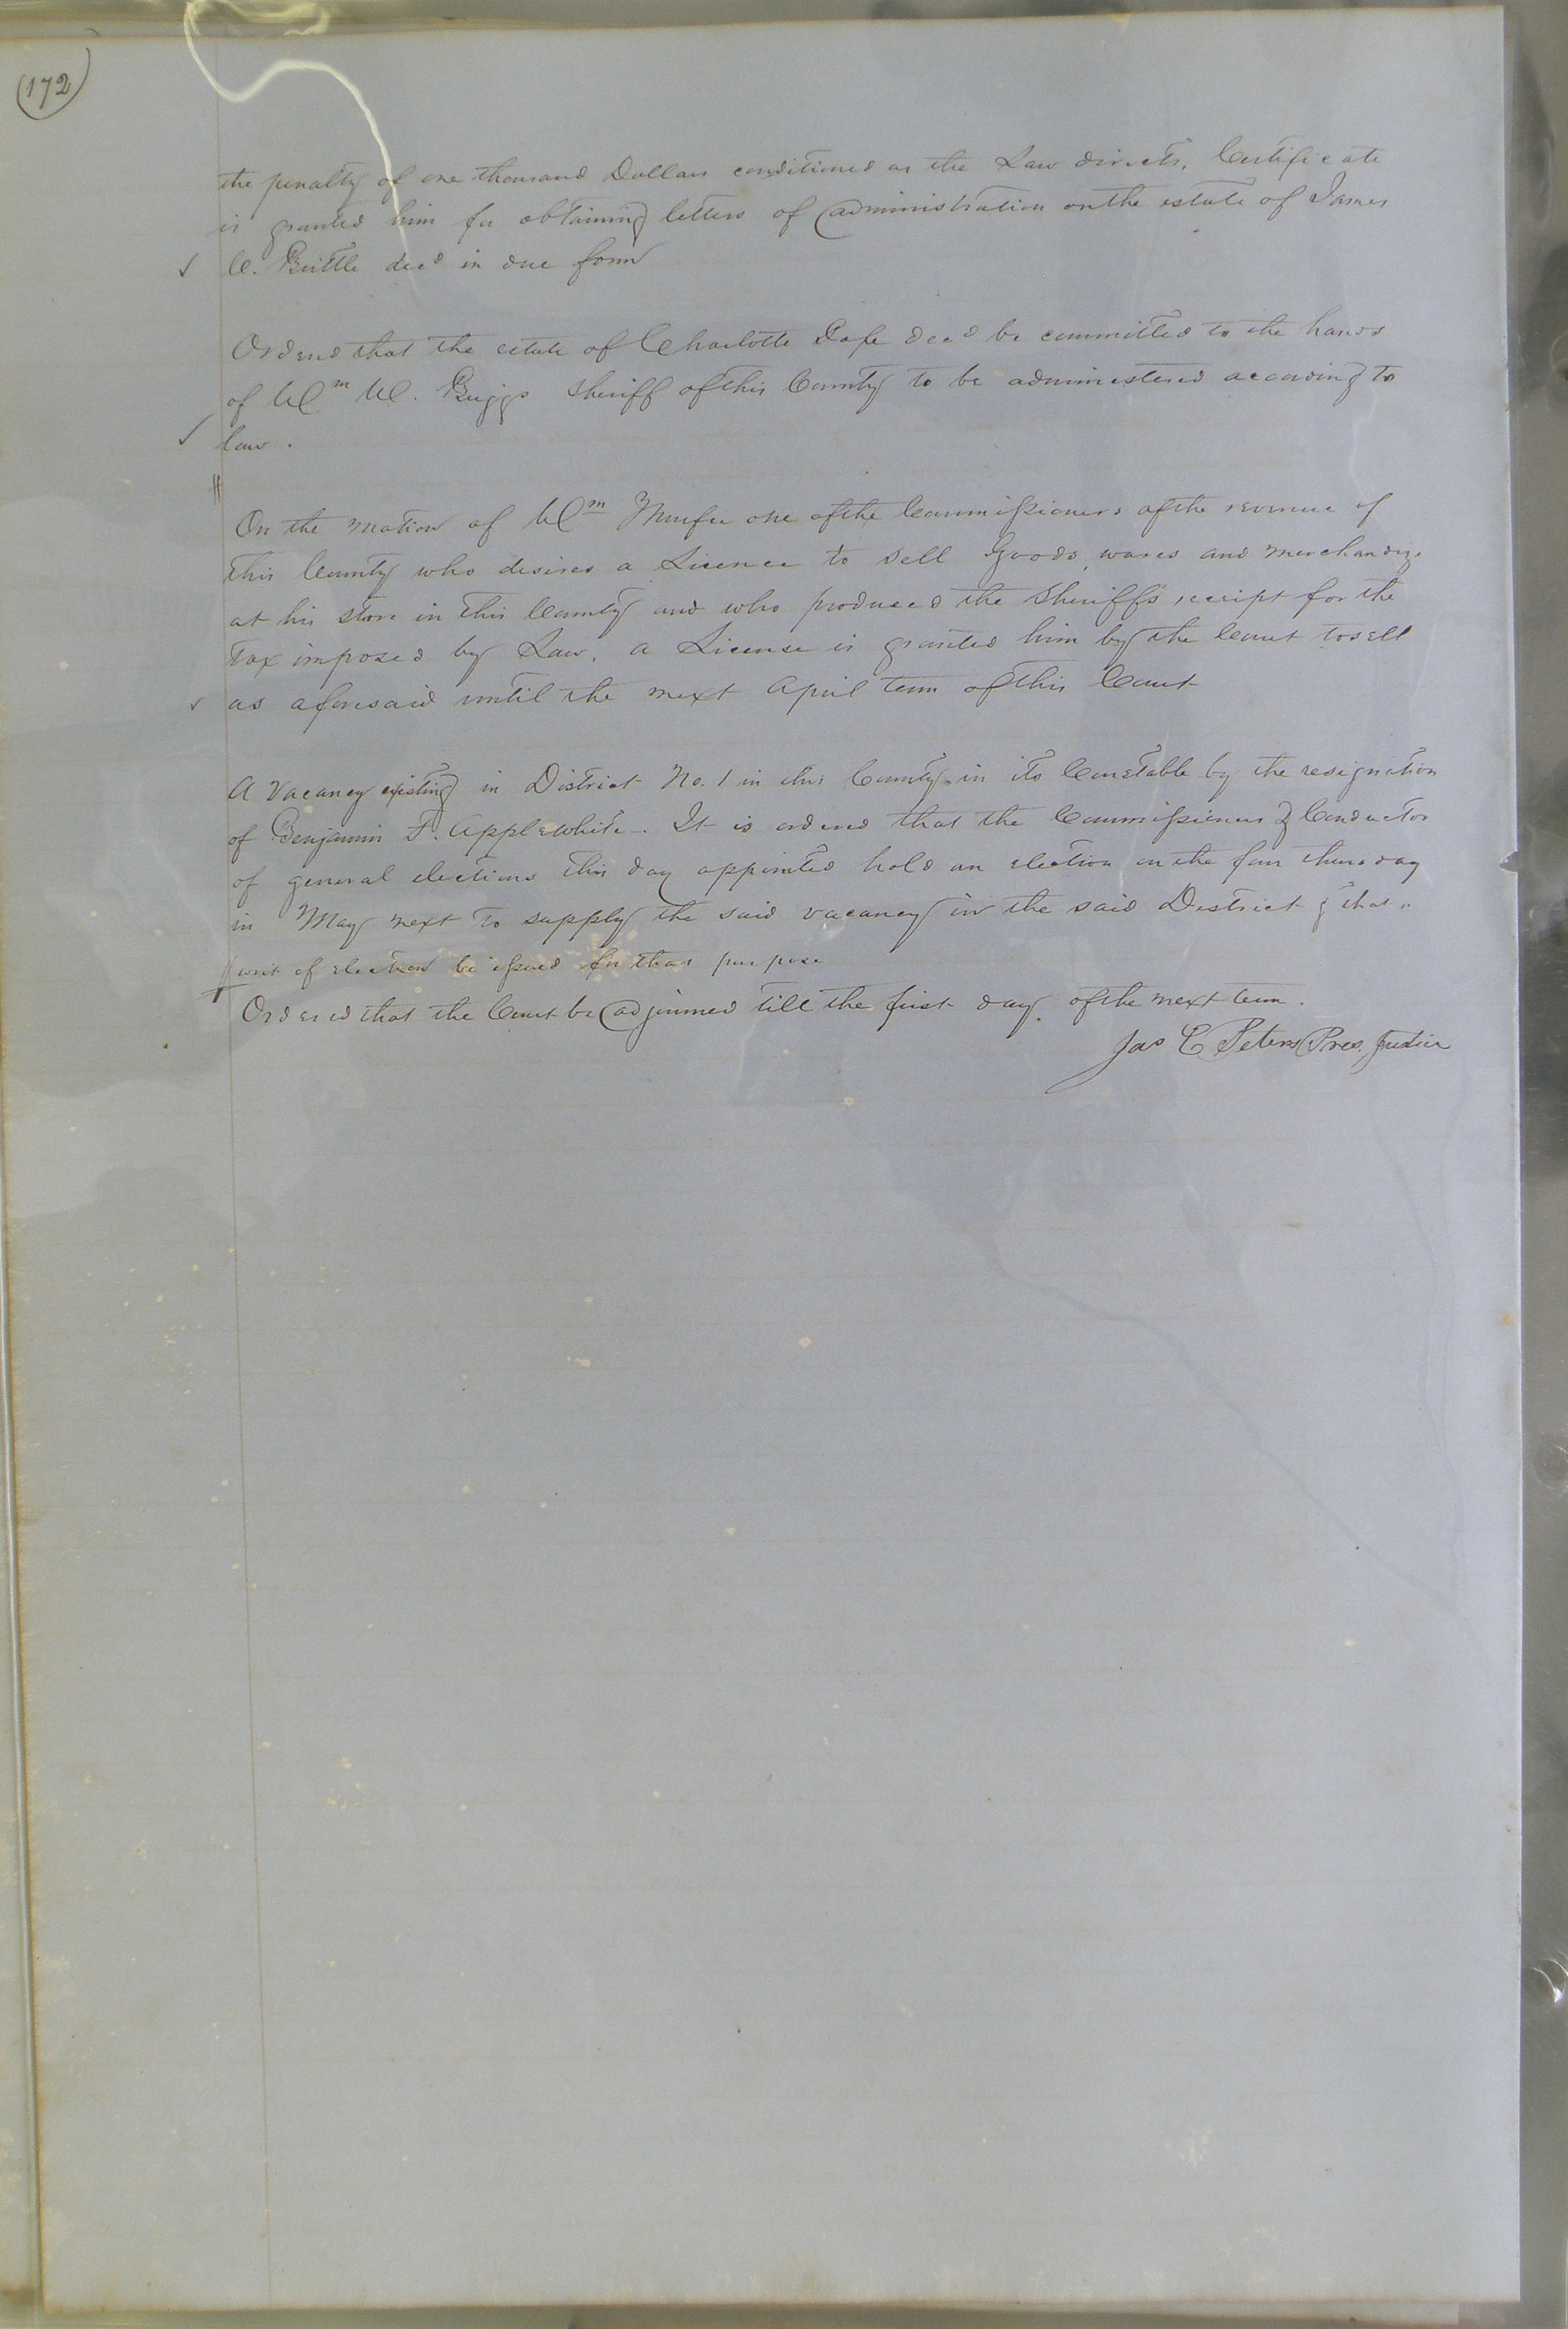 (172)
the penalty of one thousand Dollars conditioned as the Law directs. Certificate
is granted him for obtaining letters of administration on the estate of James
C. Brittle decd in due form
Ordered that the estate of Charlotte decd be committed to the hands
of Wm W. Briggs Sheriff of this County to be administered according to
law.
On the motion of Wm Murfee one of the Commissioners of the revenue of
this County who desires a Licence to sell Goods, wares and merchandize
at his store in this County and who produced the Sheriff's receipt for the
Tax imposed by Law, a License is granted him by the Court to sell
as aforesaid until the next April term of this Court
A Vacancy existing in District No. 1 in this County in its Constable by the resignation
of Benjamin F. Applewhite. It is ordered that the Commissioners & Conductor
of general elections this day appointed hold an election on the thursday
in May next to supply the said vacancy in the said District & that a
writ of election be issued for that purpose
Ordered that the Court be adjourned till the first day of the next term.
Jas C Peters Pres. Justice